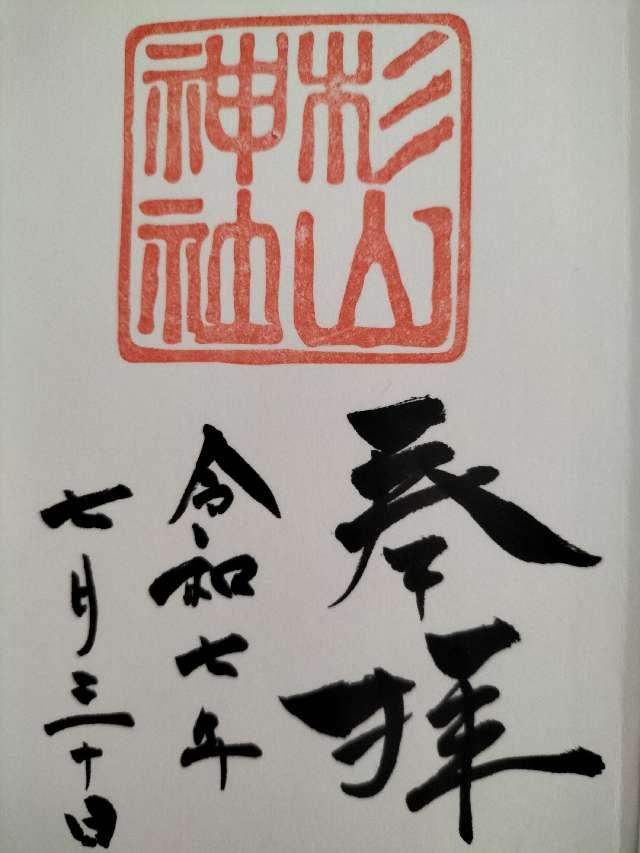 杉山
神社
奉拝
令和七年
七月三十日